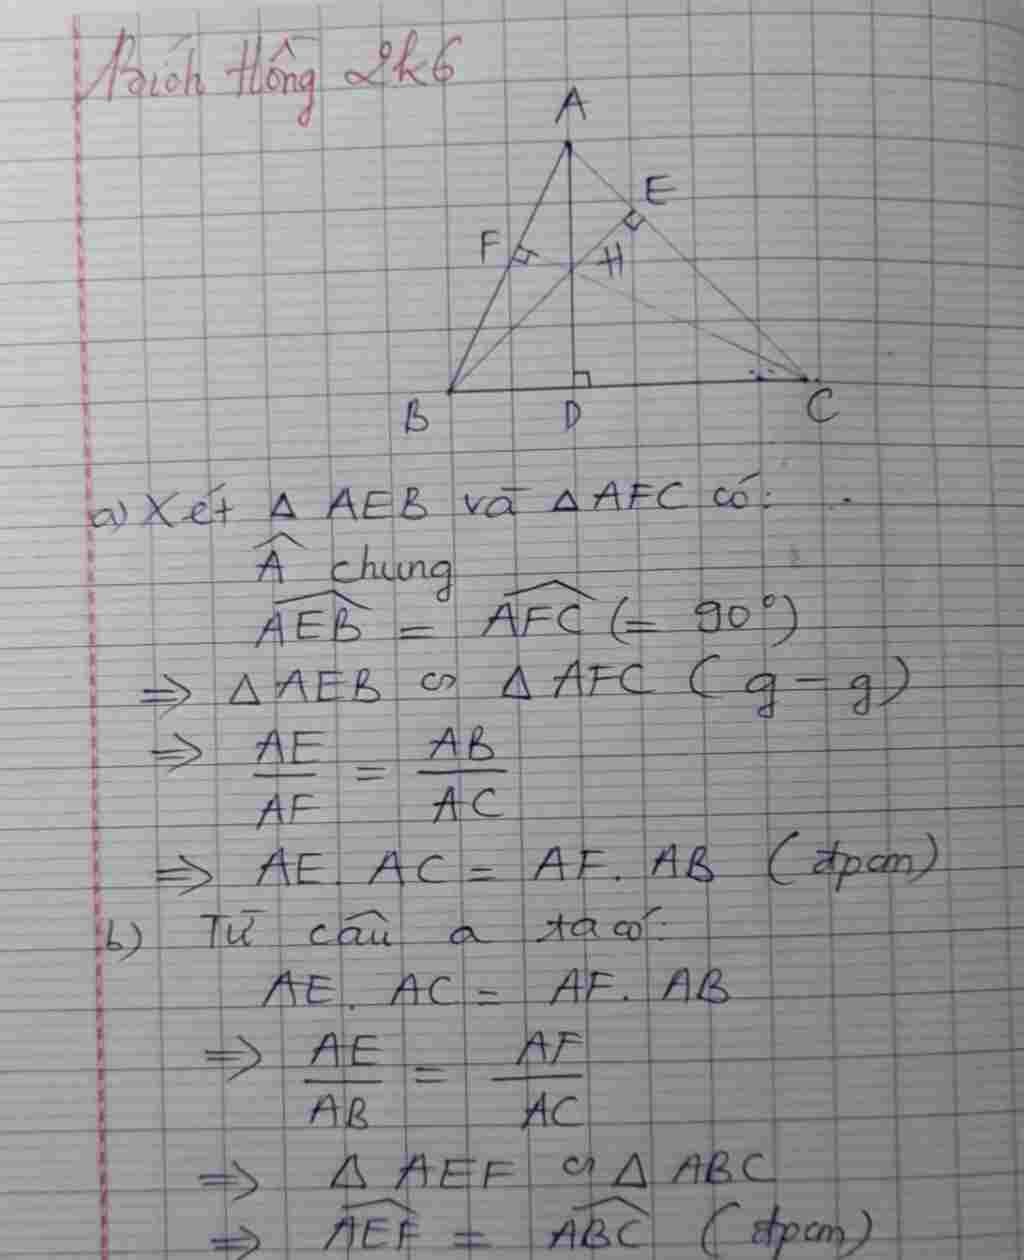 Bích Hồng 2k6
A
E
F
H
B
D
C
a) Xét Δ AEB và Δ AFC có:
Â chung
\widehat{AEB} = \widehat{AFC} (= 90°)
⇒ Δ AEB ∽ Δ AFC (g - g)
⇒ AE/AF = AB/AC
⇒ AE. AC = AF. AB (đpcm)
b) Từ câu a ta có:
AE. AC = AF. AB
⇒ AE/AB = AF/AC
⇒ Δ AEF ∽ Δ ABC
⇒ \widehat{AEF} = \widehat{ABC} (đpcm)